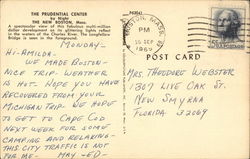 THE PRUDENTIAL CENTER
by Night
THE NEW BOSTON, Mass.
A spectacular view of this fabulous multi-million
dollar development as its glittering lights reflect
the waters of the Charles River. The Longfellow
Bridge is seen in the foreground.
MONDAY-
HI-AMILDA-
WE MADE BOSTON-
NICE TRIP-WEATHER
IS HOT. HOPE YOU HAVE
RECOVERED FROM YOUR
MICHIGAN TRIP WE HOPE
TO GET TO CAPE COD
NEXT WEEK FOR SOME
CAMPING AND RELAXING-
THIS CITY TRAFFIC IS NOT
FOR ME- MAY-ED-
BOSTON, MASS.
PM
POST CARD
MRS THEODORE WEBSTER
1307 LIVE OAK ST.
NEW SMYRNA
FLORIDA 32069